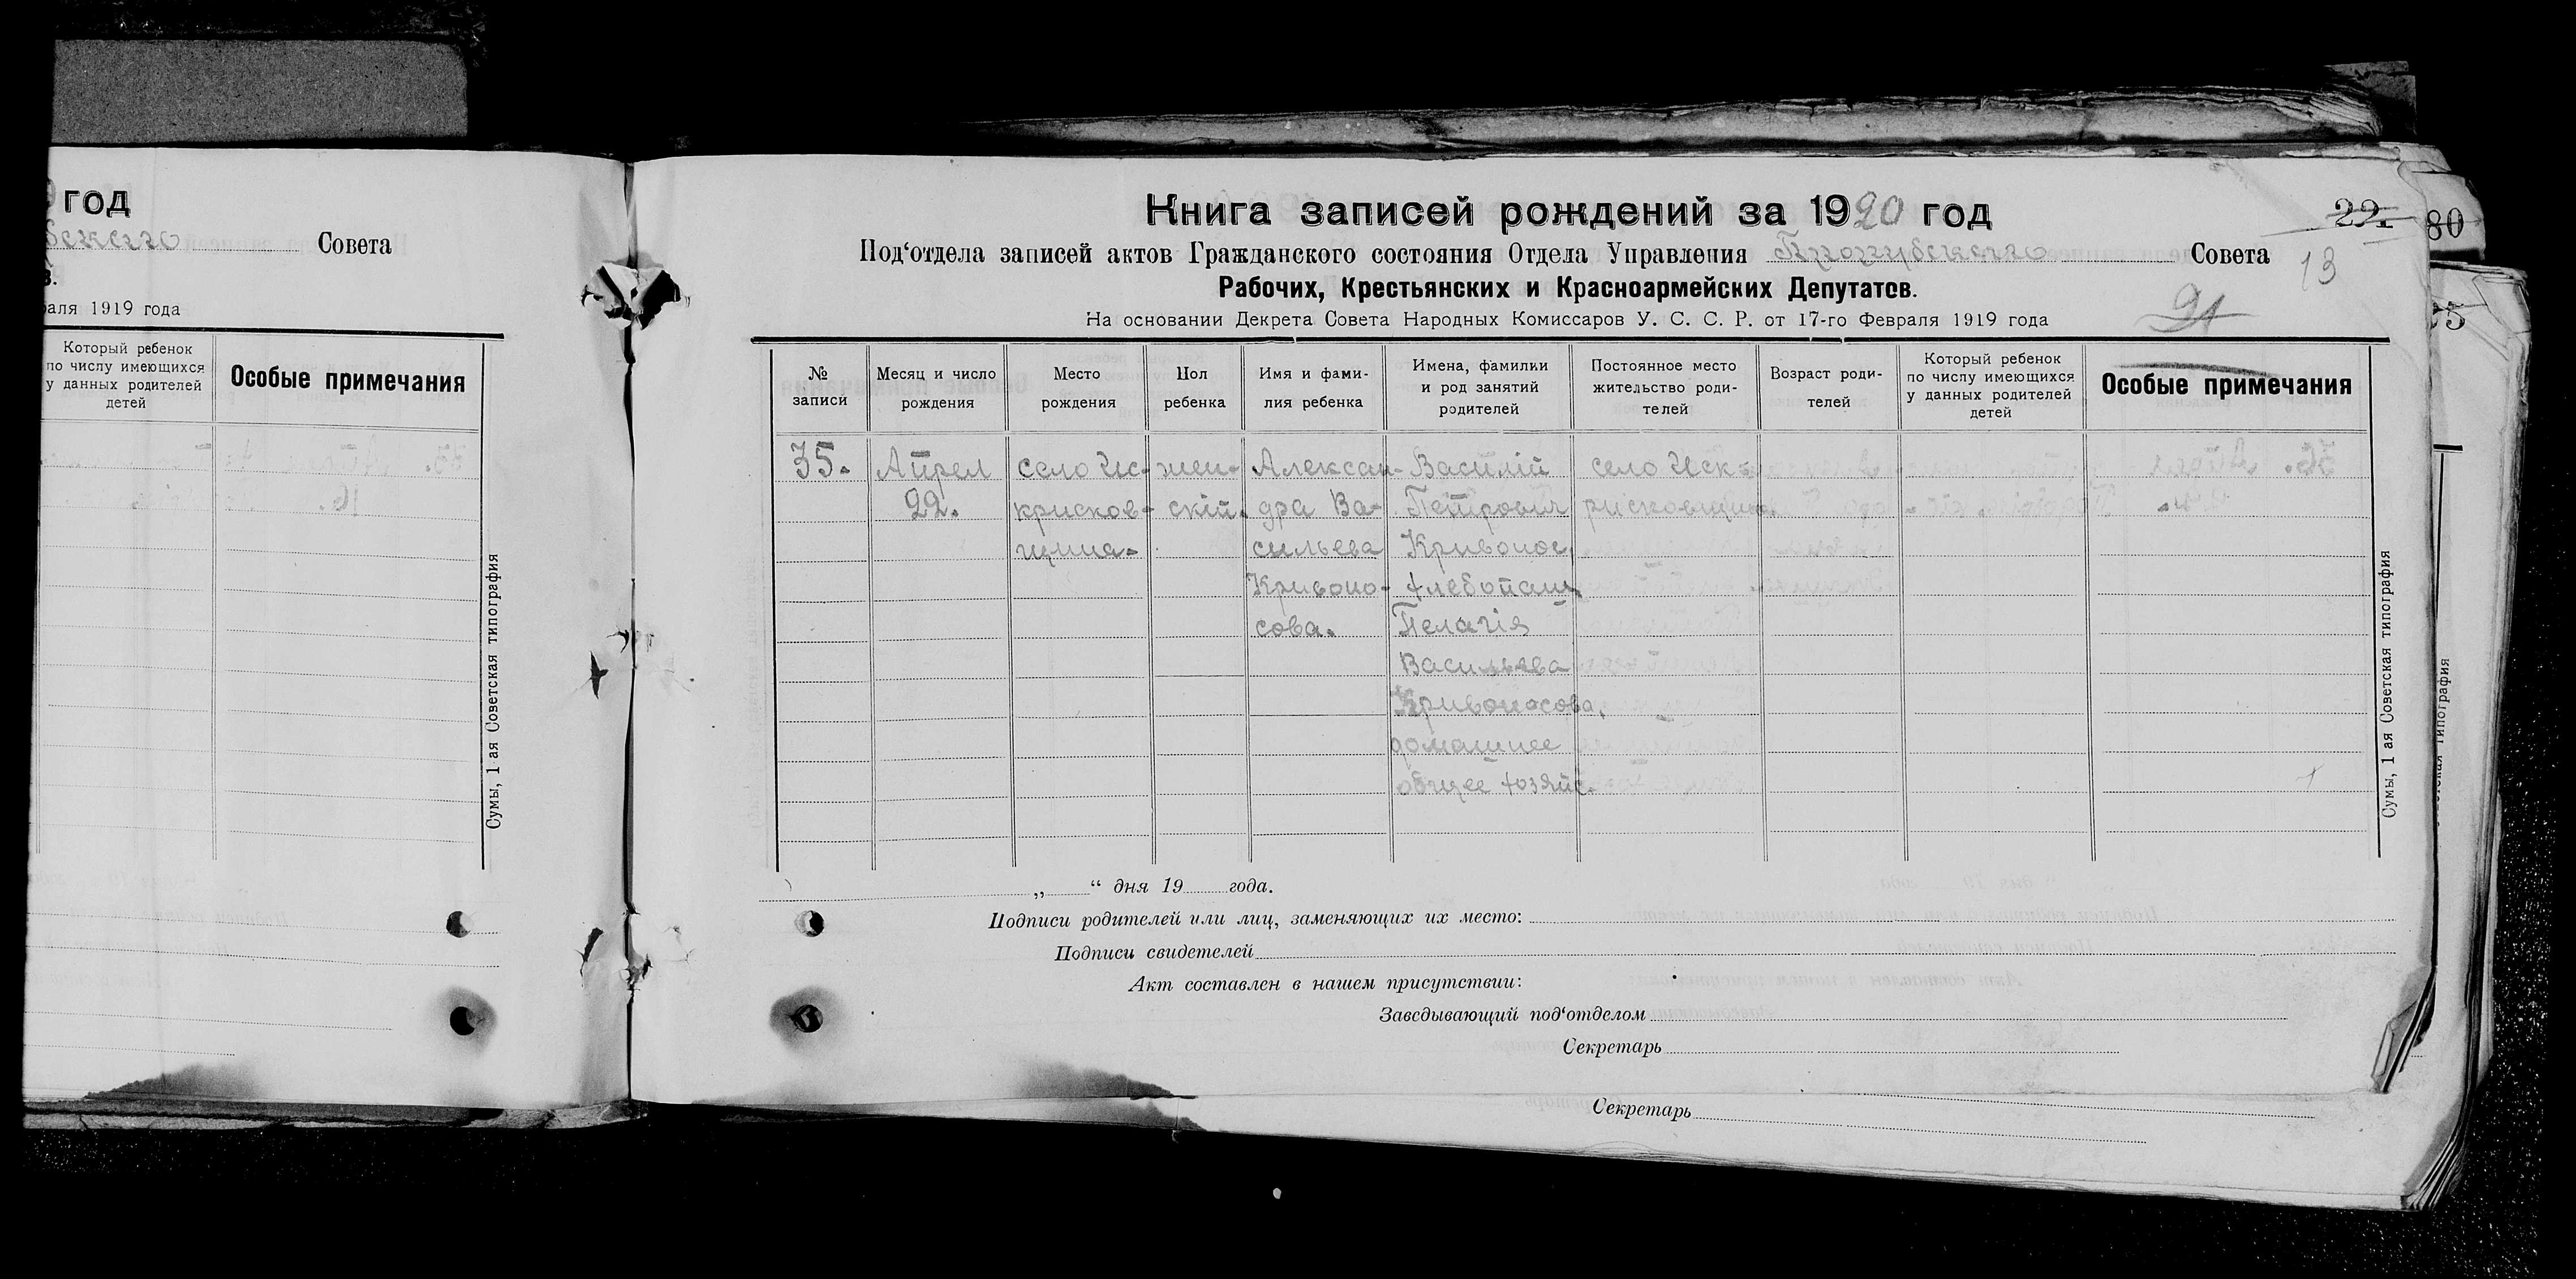 год
Совета
аля 1919 года
Который ребенок
по числу имеющихся
у данных родителей
детей
Особые примечания
Сумы, 1 ая Советская типография
Книга записей рождений за 1920 год
22.
80
Под‘отдела записей актов Гражданского состояния Отдела Управления Совета
13
Рабочих, Крестьянских и Красноармейских Депутатов.
91
На основании Декрета Совета Народных Комиссаров У. С. С. Р. от 17-го Февраля 1919 года
№
записи
Месяц и число
рождения
Место
рождения
Пол
ребенка
Имя и фами-
лия ребенка
Имена, фамилии
и род занятий
родителей
Постоянное место
жительство роди-
телей
Возраст роди-
телей
Который ребенок
по числу имеющихся
у данных родителей
детей
Особые примечания
35.
Апрел
22.
село Ис-
крисков-
щина.
жен-
скій.
Алексан-
дра Ва-
сильева
Кривоно-
сова.
Василій
Петрович
Кривонос,
хлебопаш.
Пелагія
Васильева
Кривоносова,
домашнее
общее хозяйс.
село Иск-
рисковщина.
Сумы, 1 ая Советская типография
„ “ дня 19 года.
Подписи родителей или лиц, заменяющих их место:
Подписи свидетелей
Акт составлен в нашем присутствии:
Заведывающий под‘отделом
Секретарь
Секретарь